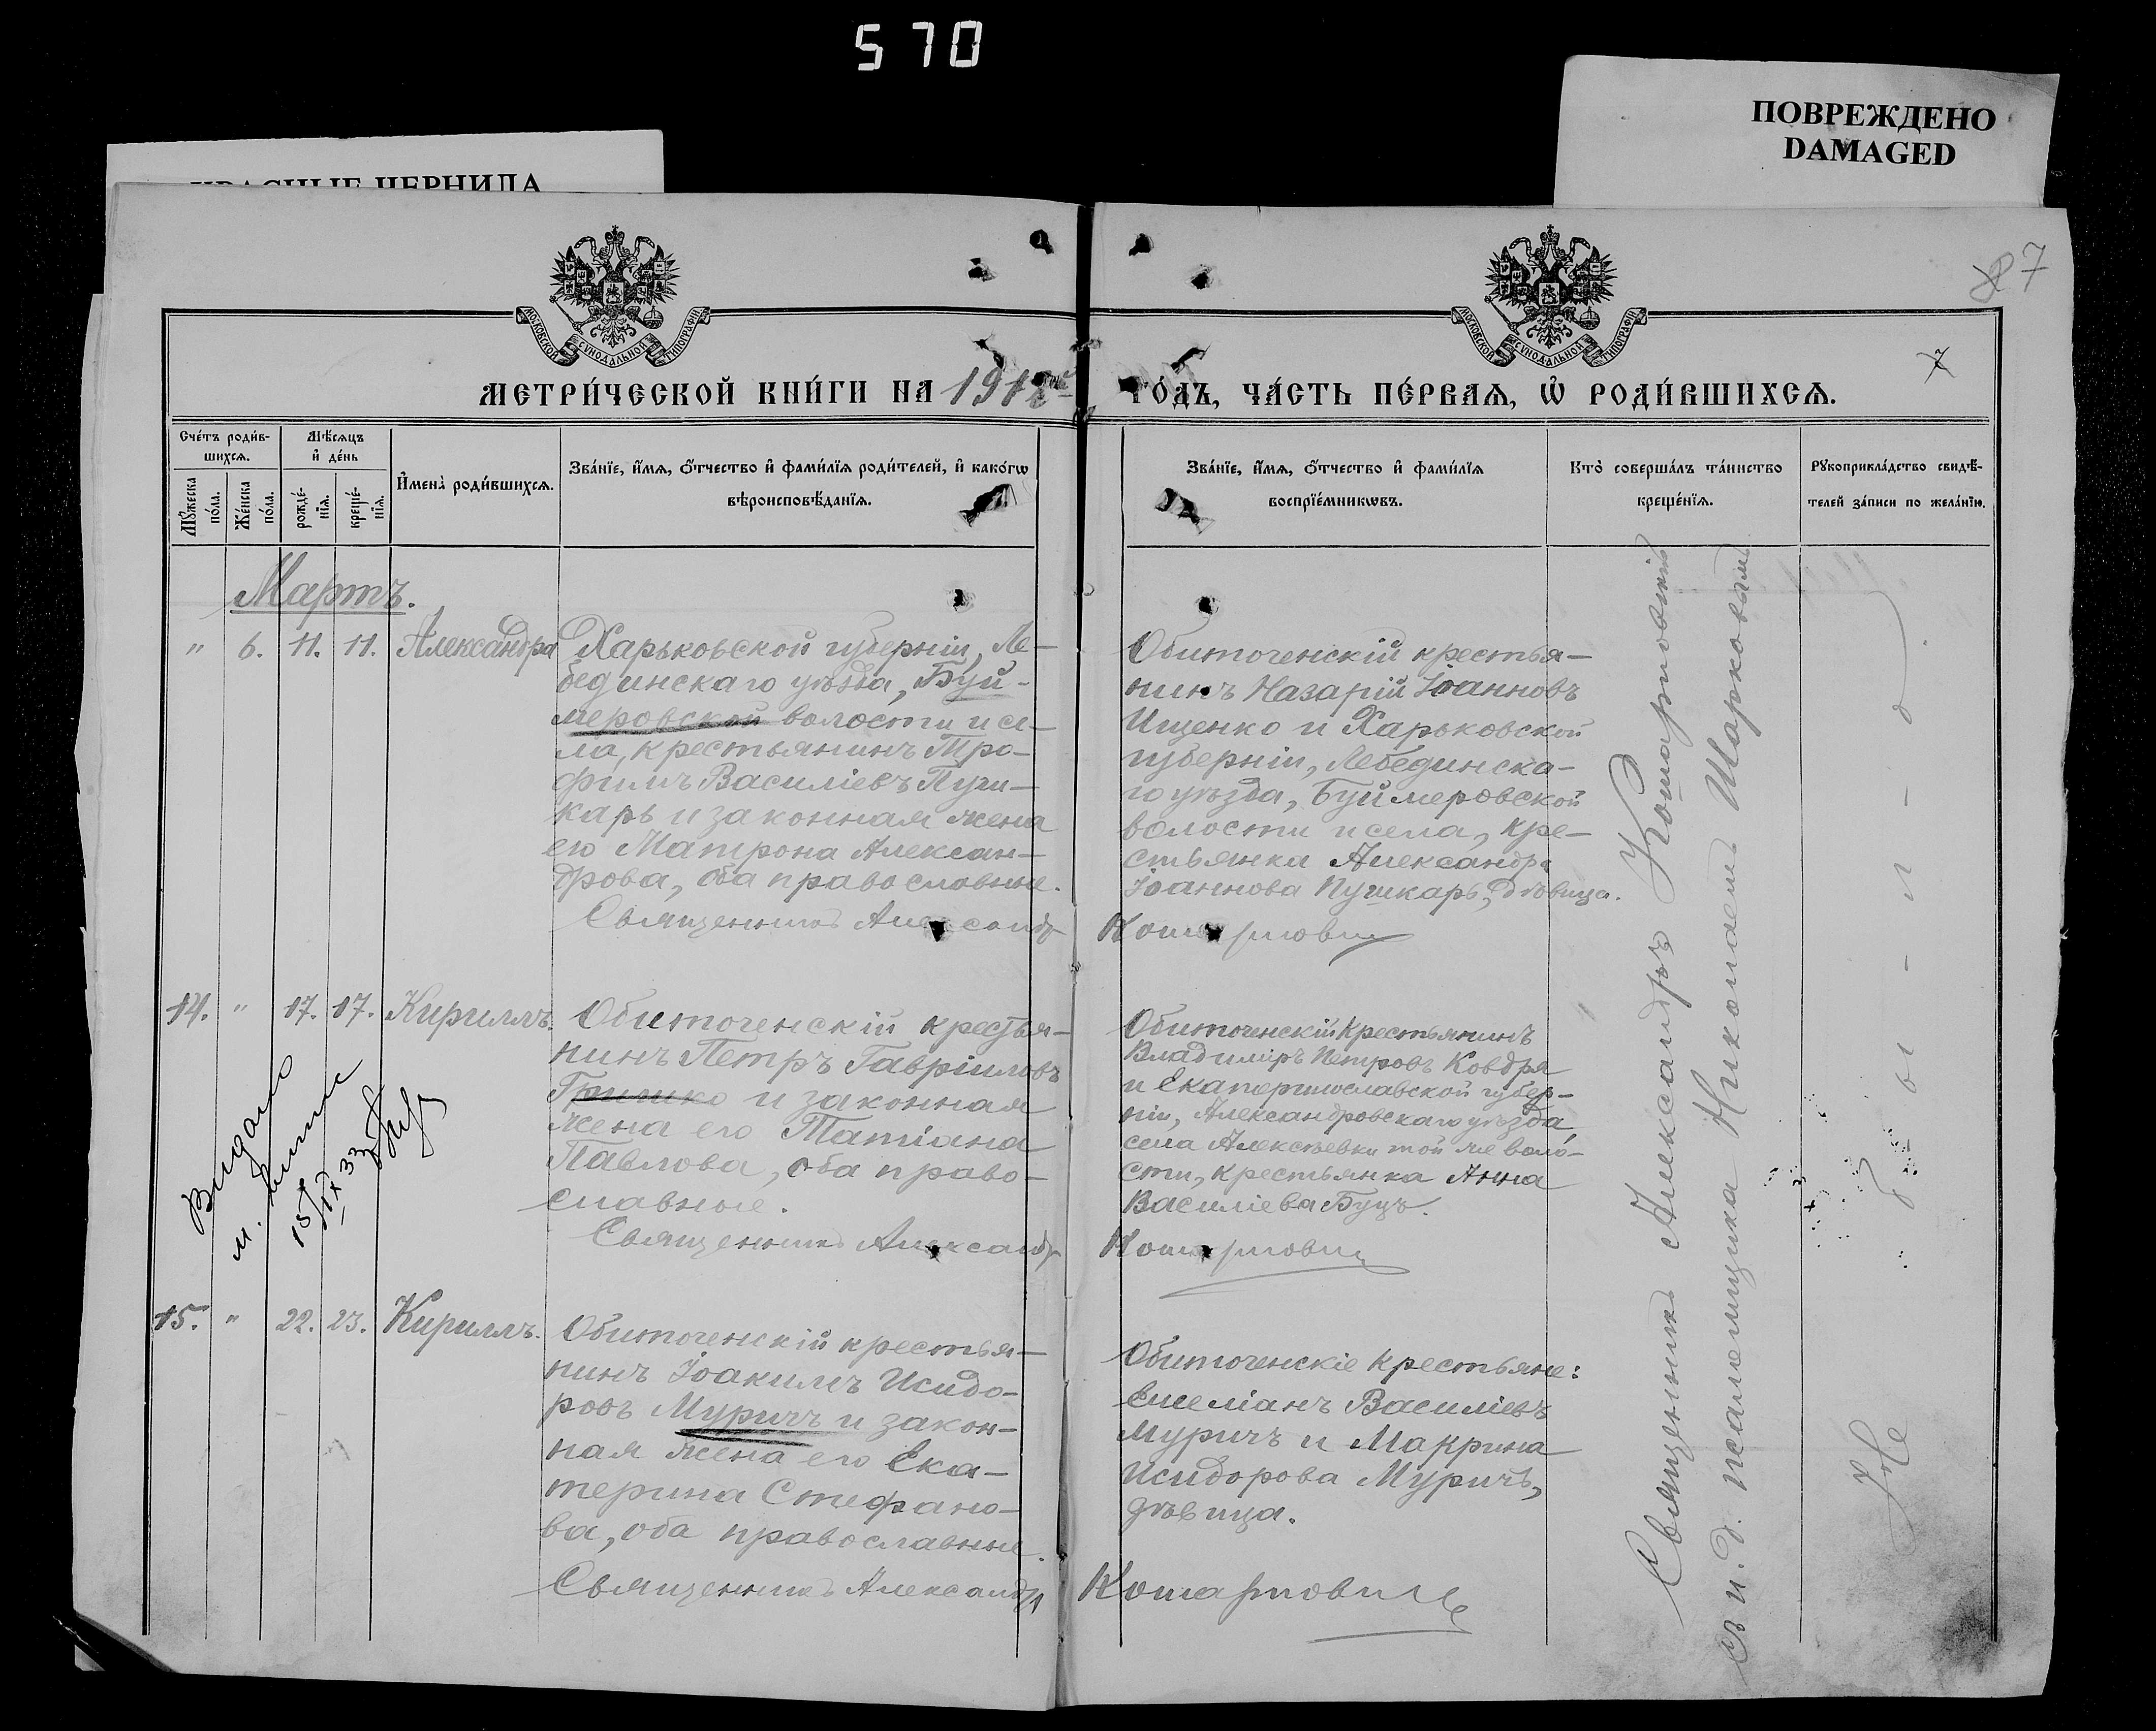 570
ПОВРЕЖДЕНО
DAMAGED
КРАСНЫЕ ЧЕРНИЛА
87
7
МОСКОВСКОЙ СѴНОДАЛЬНОЙ ТИПОГРАФІИ
МОСКОВСКОЙ СѴНОДАЛЬНОЙ ТИПОГРАФІИ
МЕТРИ́ЧЕСКОЙ КНИ́ГИ НА 1912 ГО́ДЪ, ЧА́СТЬ ПЕ́РВАѦ, Ѽ РОДИ́ВШИХСѦ.
Сче́тъ роди́в-
шихсѧ.
Мѣ́сѧцъ
и҆ де́нь
Мꙋ́жеска
по́ла.
Же́нска
по́ла.
рожде́-
нїѧ.
креще́-
нїѧ.
И҆мена̀ роди́вшихсѧ.
Зва́нїе, и҆́мѧ, ѻ҆́тчество и҆ фами́лїѧ роди́телей, и҆ како́гѡ
вѣроисповѣ́данїѧ.
Зва́нїе, и҆́мѧ, ѻ҆́тчество и҆ фами́лїѧ
воспрїе́мникѡвъ.
Кто̀ соверша́лъ та́инство
креще́нїѧ.
Рꙋкоприкла́дство свидѣ́-
телей за́писи по жела́нїю.
Мартъ.
" 6. 11. 11. Александра
Харьковской губерніи, Ле-
бединскаго уѣзда, Буй-
меровской волости и се-
ла, крестьянинъ Тро-
фимъ Василіевъ Пуш-
карь и законная жена
его Матрона Алексан-
дрова, оба православные.
Священникъ Александръ
Обиточенскій крестья-
нинъ Назарій Іоанновъ
Ищенко и Харьковской
губерніи, Лебединска-
го уѣзда, Буймеровской
волости и села, кре-
стьянка Александра
Іоаннова Пушкарь, дѣвица.
14. " 17. 17. Кириллъ.
Обиточенскій крестья-
нинъ Петръ Гавріиловъ
Гришко и законная
жена его Татіана
Павлова, оба право-
славные.
Священникъ Александръ
Обиточенскій крестьянинъ
Владиміръ Петровъ Ковдря
и Екатеринославской губер-
ніи, Александровскаго уѣзда,
села Алексѣевки той же воло-
сти, крестьянка Анна
Василіева Буцъ.
Видано
15/IX 33
15. " 22. 23. Кириллъ.
Обиточенскій крестья-
нинъ Іоакимъ Исидо-
ровъ Муричъ и закон-
ная жена его Ека-
терина Стефано-
ва, оба православные.
Священникъ Александръ
Обиточенскіе крестьяне:
Емеліанъ Василіевъ
Муричъ и Макрина
Исидорова Муричъ,
дѣвица.
Священникъ Александръ
съ и. д. псаломщика Николаемъ Шарковымъ
Не бы-л-о.